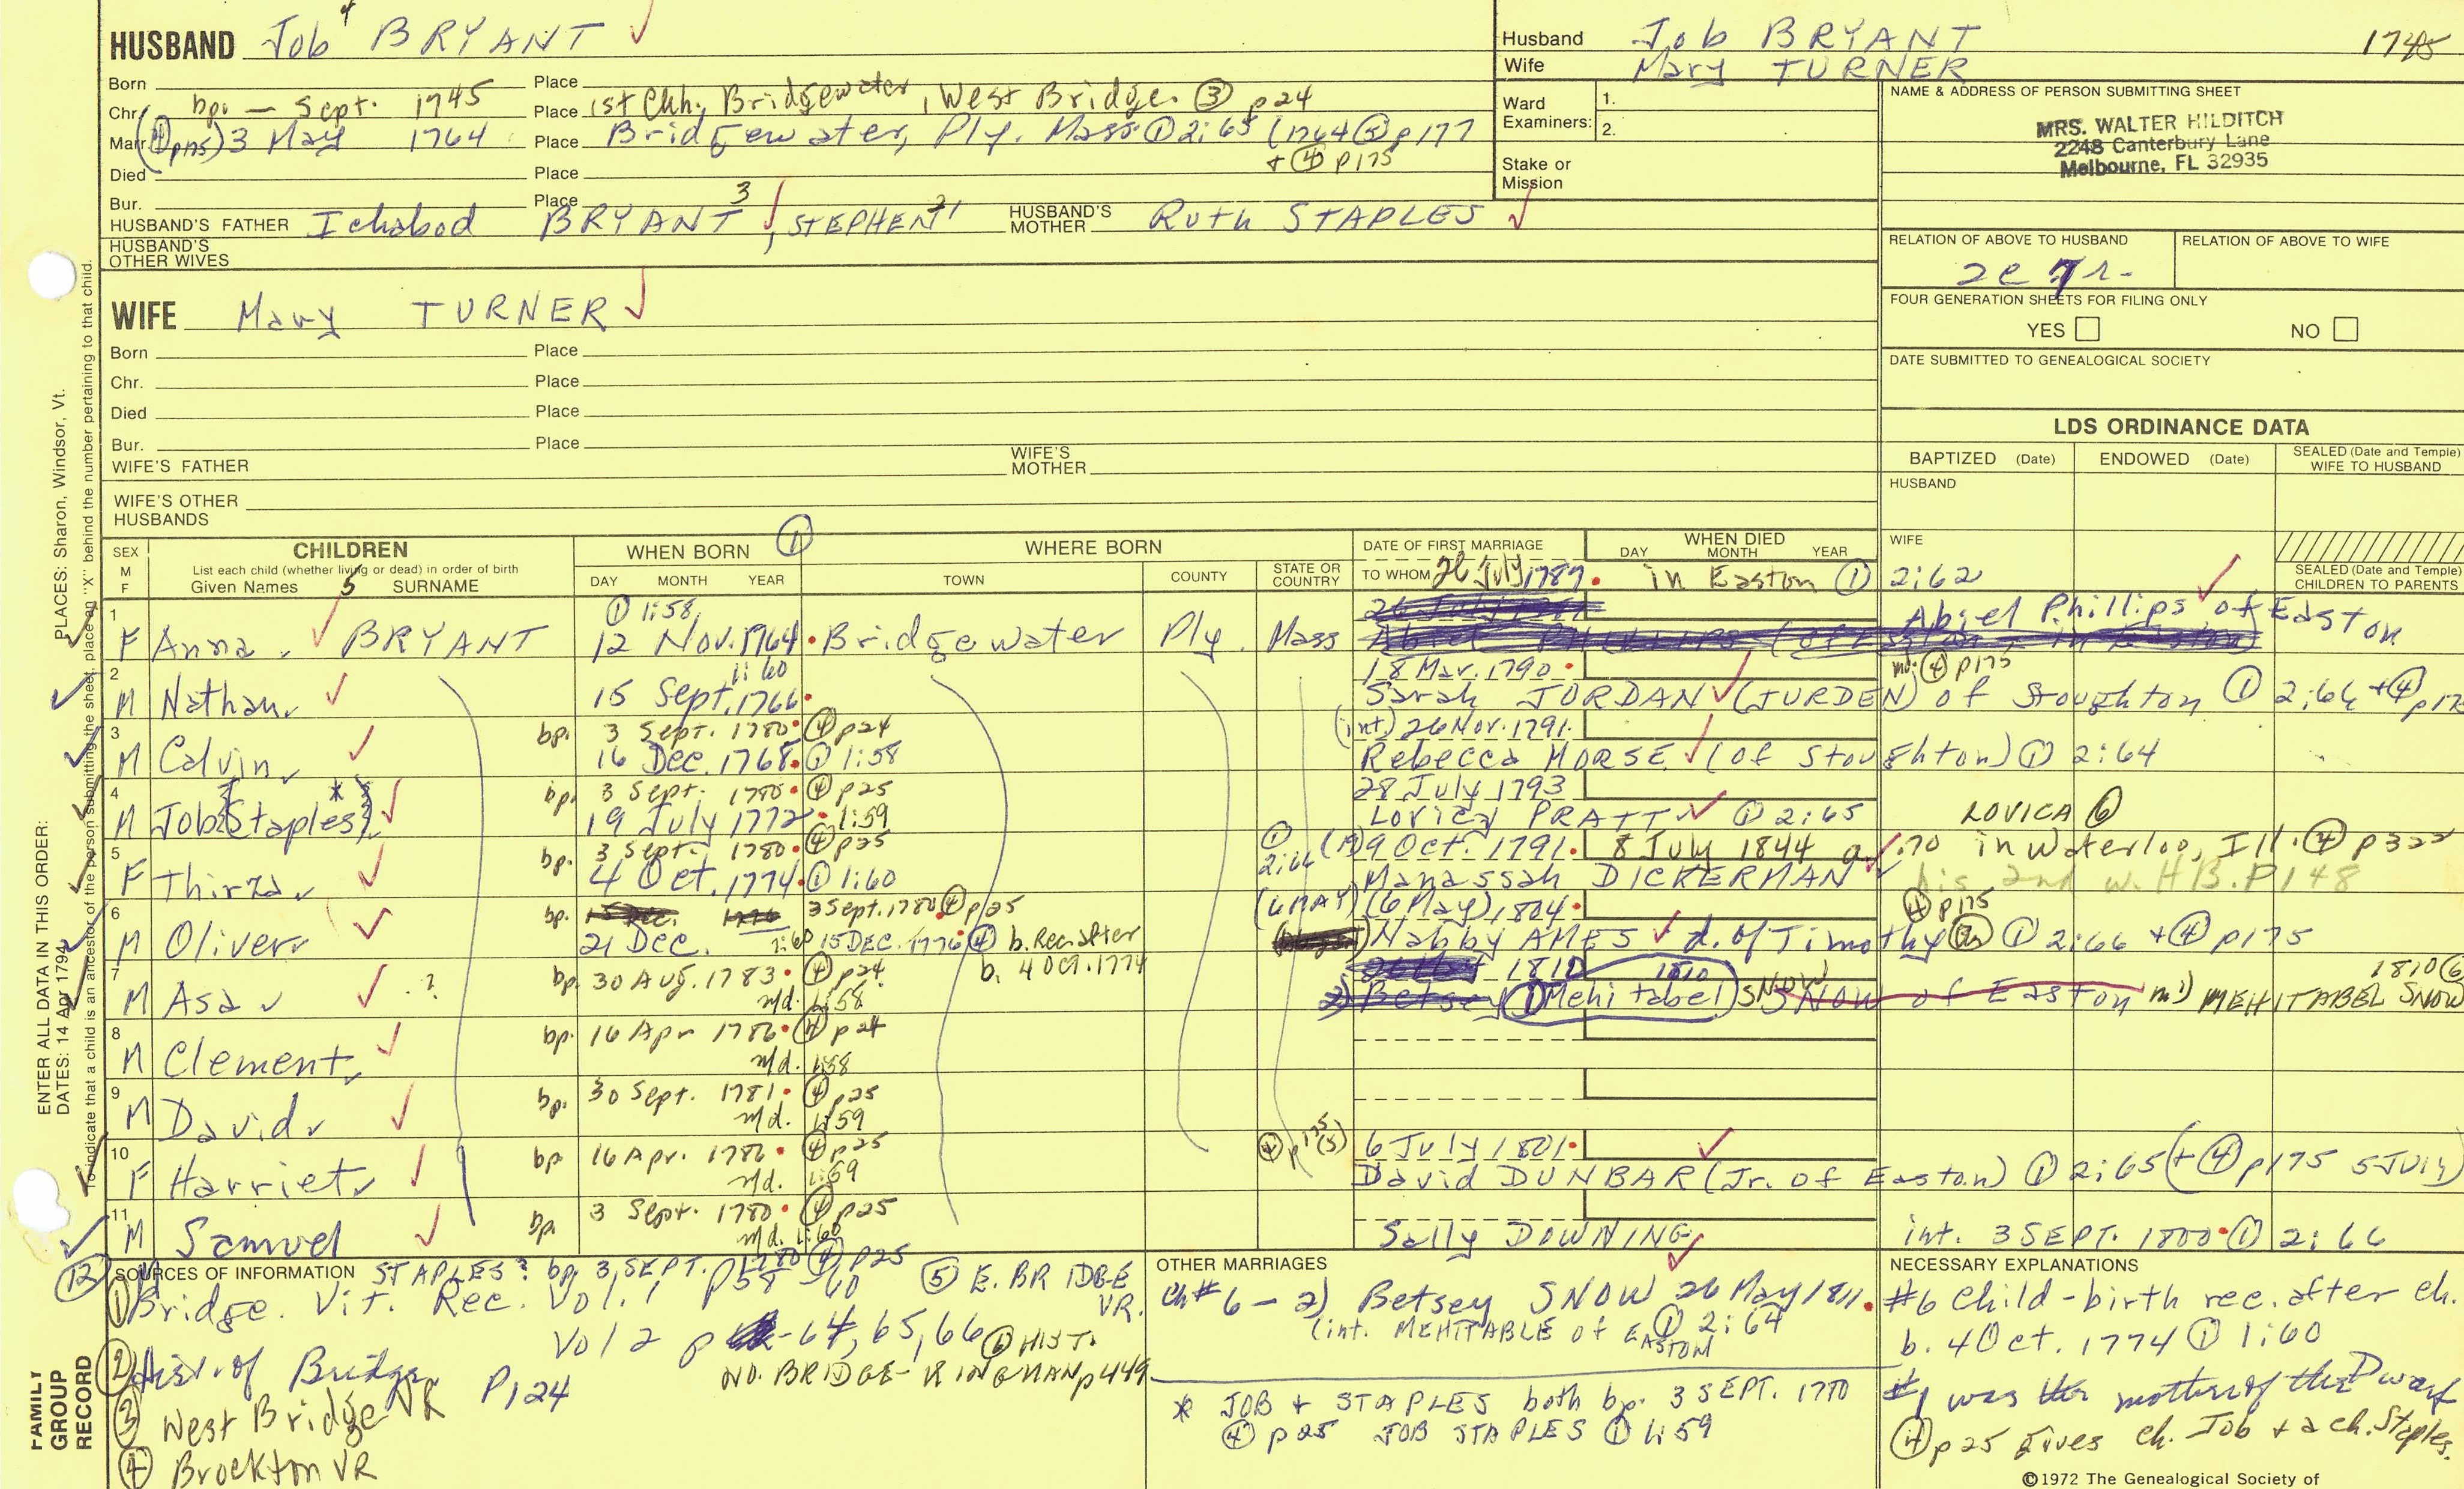 HUSBAND Job 4 BRYANT ✓
Born Place
Chr. bp. — Sept. 1745 Place 1st Chh., Bridgewater, West Bridge. ③ p24
Marr. (④ p175) 3 May 1764 Place Bridgewater, Ply. Mass ① 2:65 (1764 ⑤ p177
+ ④ p175
Died Place
Bur. Place
HUSBAND'S FATHER Ichabod BRYANT 3 ✓, STEPHEN 2, 1 HUSBAND'S MOTHER Ruth STAPLES ✓
HUSBAND'S OTHER WIVES
WIFE Mary TURNER ✓
Born Place
Chr. Place
Died Place
Bur. Place
WIFE'S FATHER WIFE'S MOTHER
WIFE'S OTHER HUSBANDS
Husband Job BRYANT 1745
Wife Mary TURNER
Ward Examiners: 1.
2.
Stake or Mission
NAME & ADDRESS OF PERSON SUBMITTING SHEET
MRS. WALTER HILDITCH
2248 Canterbury Lane
Melbourne, FL 32935
RELATION OF ABOVE TO HUSBAND RELATION OF ABOVE TO WIFE
FOUR GENERATION SHEETS FOR FILING ONLY
YES NO
DATE SUBMITTED TO GENEALOGICAL SOCIETY
LDS ORDINANCE DATA
BAPTIZED (Date) ENDOWED (Date) SEALED (Date and Temple) WIFE TO HUSBAND
HUSBAND
WIFE
SEALED (Date and Temple) CHILDREN TO PARENTS
SEX M F CHILDREN WHEN BORN ① WHERE BORN DATE OF FIRST MARRIAGE WHEN DIED
List each child (whether living or dead) in order of birth
Given Names 5 SURNAME DAY MONTH YEAR TOWN COUNTY STATE OR COUNTRY TO WHOM DAY MONTH YEAR
26 July 1787. in Easton ① 2:62
1 ① 1:58
F Anna BRYANT ✓ 12 Nov. 1764 Bridgewater Ply. Mass Abiel Phillips of Easton
2 1:60 18 Mar. 1790 m. ④ p175
M Nathan ✓ 15 Sept. 1766 Sarah JORDAN ✓ (JURDEN) of Stoughton ① 2:64 + ④
3 bp. 3 Sept. 1780 ④ p24 (int) 26 Nov. 1791
M Calvin ✓ 16 Dec. 1768 ① 1:58 Rebecca MORSE ✓ (of Stoughton) ① 2:64
4 bp. 3 Sept. 1780 ④ p25 28 July 1793
M Job (Staples) * ✓ 19 July 1772 1:59 Lovica PRATT ✓ ① 2:65 LOVICA ⑥
5 bp. 3 Sept. 1780 ④ p25 ① 2:66 9 Oct. 1791 8 July 1844 a. 70 in Waterloo, Ill. ④ p322
F Thirza ✓ 4 Oct. 1774 ① 1:60 Manassah DICKERMAN ✓ his 2nd w. HB. P148
6 bp. 3 Sept. 1780 ④ p25 (6 MAY) (6 May) 1804 ④ p175
M Oliver ✓ 21 Dec. 1:60 15 DEC. 1776 ④ b. Rec. after b. 4 OCt. 1774 Nabby AMES ✓ d. of Timothy ① 2:66 + ④ p175
7 bp. 30 Aug. 1783 ④ p24 1810 1810 1810 ⑥
M Asa ✓ ? n/d. 1:58 2) Betsey ① Mehitabel) SNOW SNOW of Easton m1) MEHITABEL SNOW
8 bp. 16 Apr 1786 ④ p24
M Clement ✓ n/d. 1:58
9 bp. 30 Sept. 1781 ④ p25
M David ✓ n/d. 1:59
10 bp. 16 Apr. 1786 ④ p25 ④ p175 (5) 6 July 1801 ✓
F Harriet ✓ n/d. 1:59 David DUNBAR (Jr. of Easton) ① 2:65 (+ ④ p175 5 July)
11 bp. 3 Sept. 1780 ④ p25
M Samuel ✓ n/d. 1:60 Sally DOWNING ✓ int. 3 SEPT. 1800 ① 2:66
⑫ SOURCES OF INFORMATION STAPLES? bp. 3 SEPT. 1780 ④ p25
① Bridge. Vit. Rec. Vol. 1 p58-60
Vol 2 p -64, 65, 66
② Hist. of Bridge. P124
③ West Bridge VR
④ Brockton VR
⑤ E. BRIDGE VR.
⑥ HIST. NO. BRIDGE - KINGMAN p449
OTHER MARRIAGES
Ch # 6 - 2) Betsey SNOW 26 May 1811.
(int. MEHITABLE of EASTON ① 2:64
* JOB + STAPLES both bp. 3 SEPT. 1780
④ p25 JOB STAPLES ① 1:59
NECESSARY EXPLANATIONS
#6 child - birth rec. after ch.
b. 4 Oct. 1774 ① 1:60
#1 was the mother of the Dwarf
④ p25 gives ch. Job + a ch. Staples.
©1972 The Genealogical Society of
ENTER ALL DATA IN THIS ORDER:
PLACES: Sharon, Windsor, Vt.
DATES: 14 Apr 1794
To indicate that a child is an ancestor of the person submitting the sheet, place an "X" behind the number pertaining to that child.
FAMILY GROUP RECORD